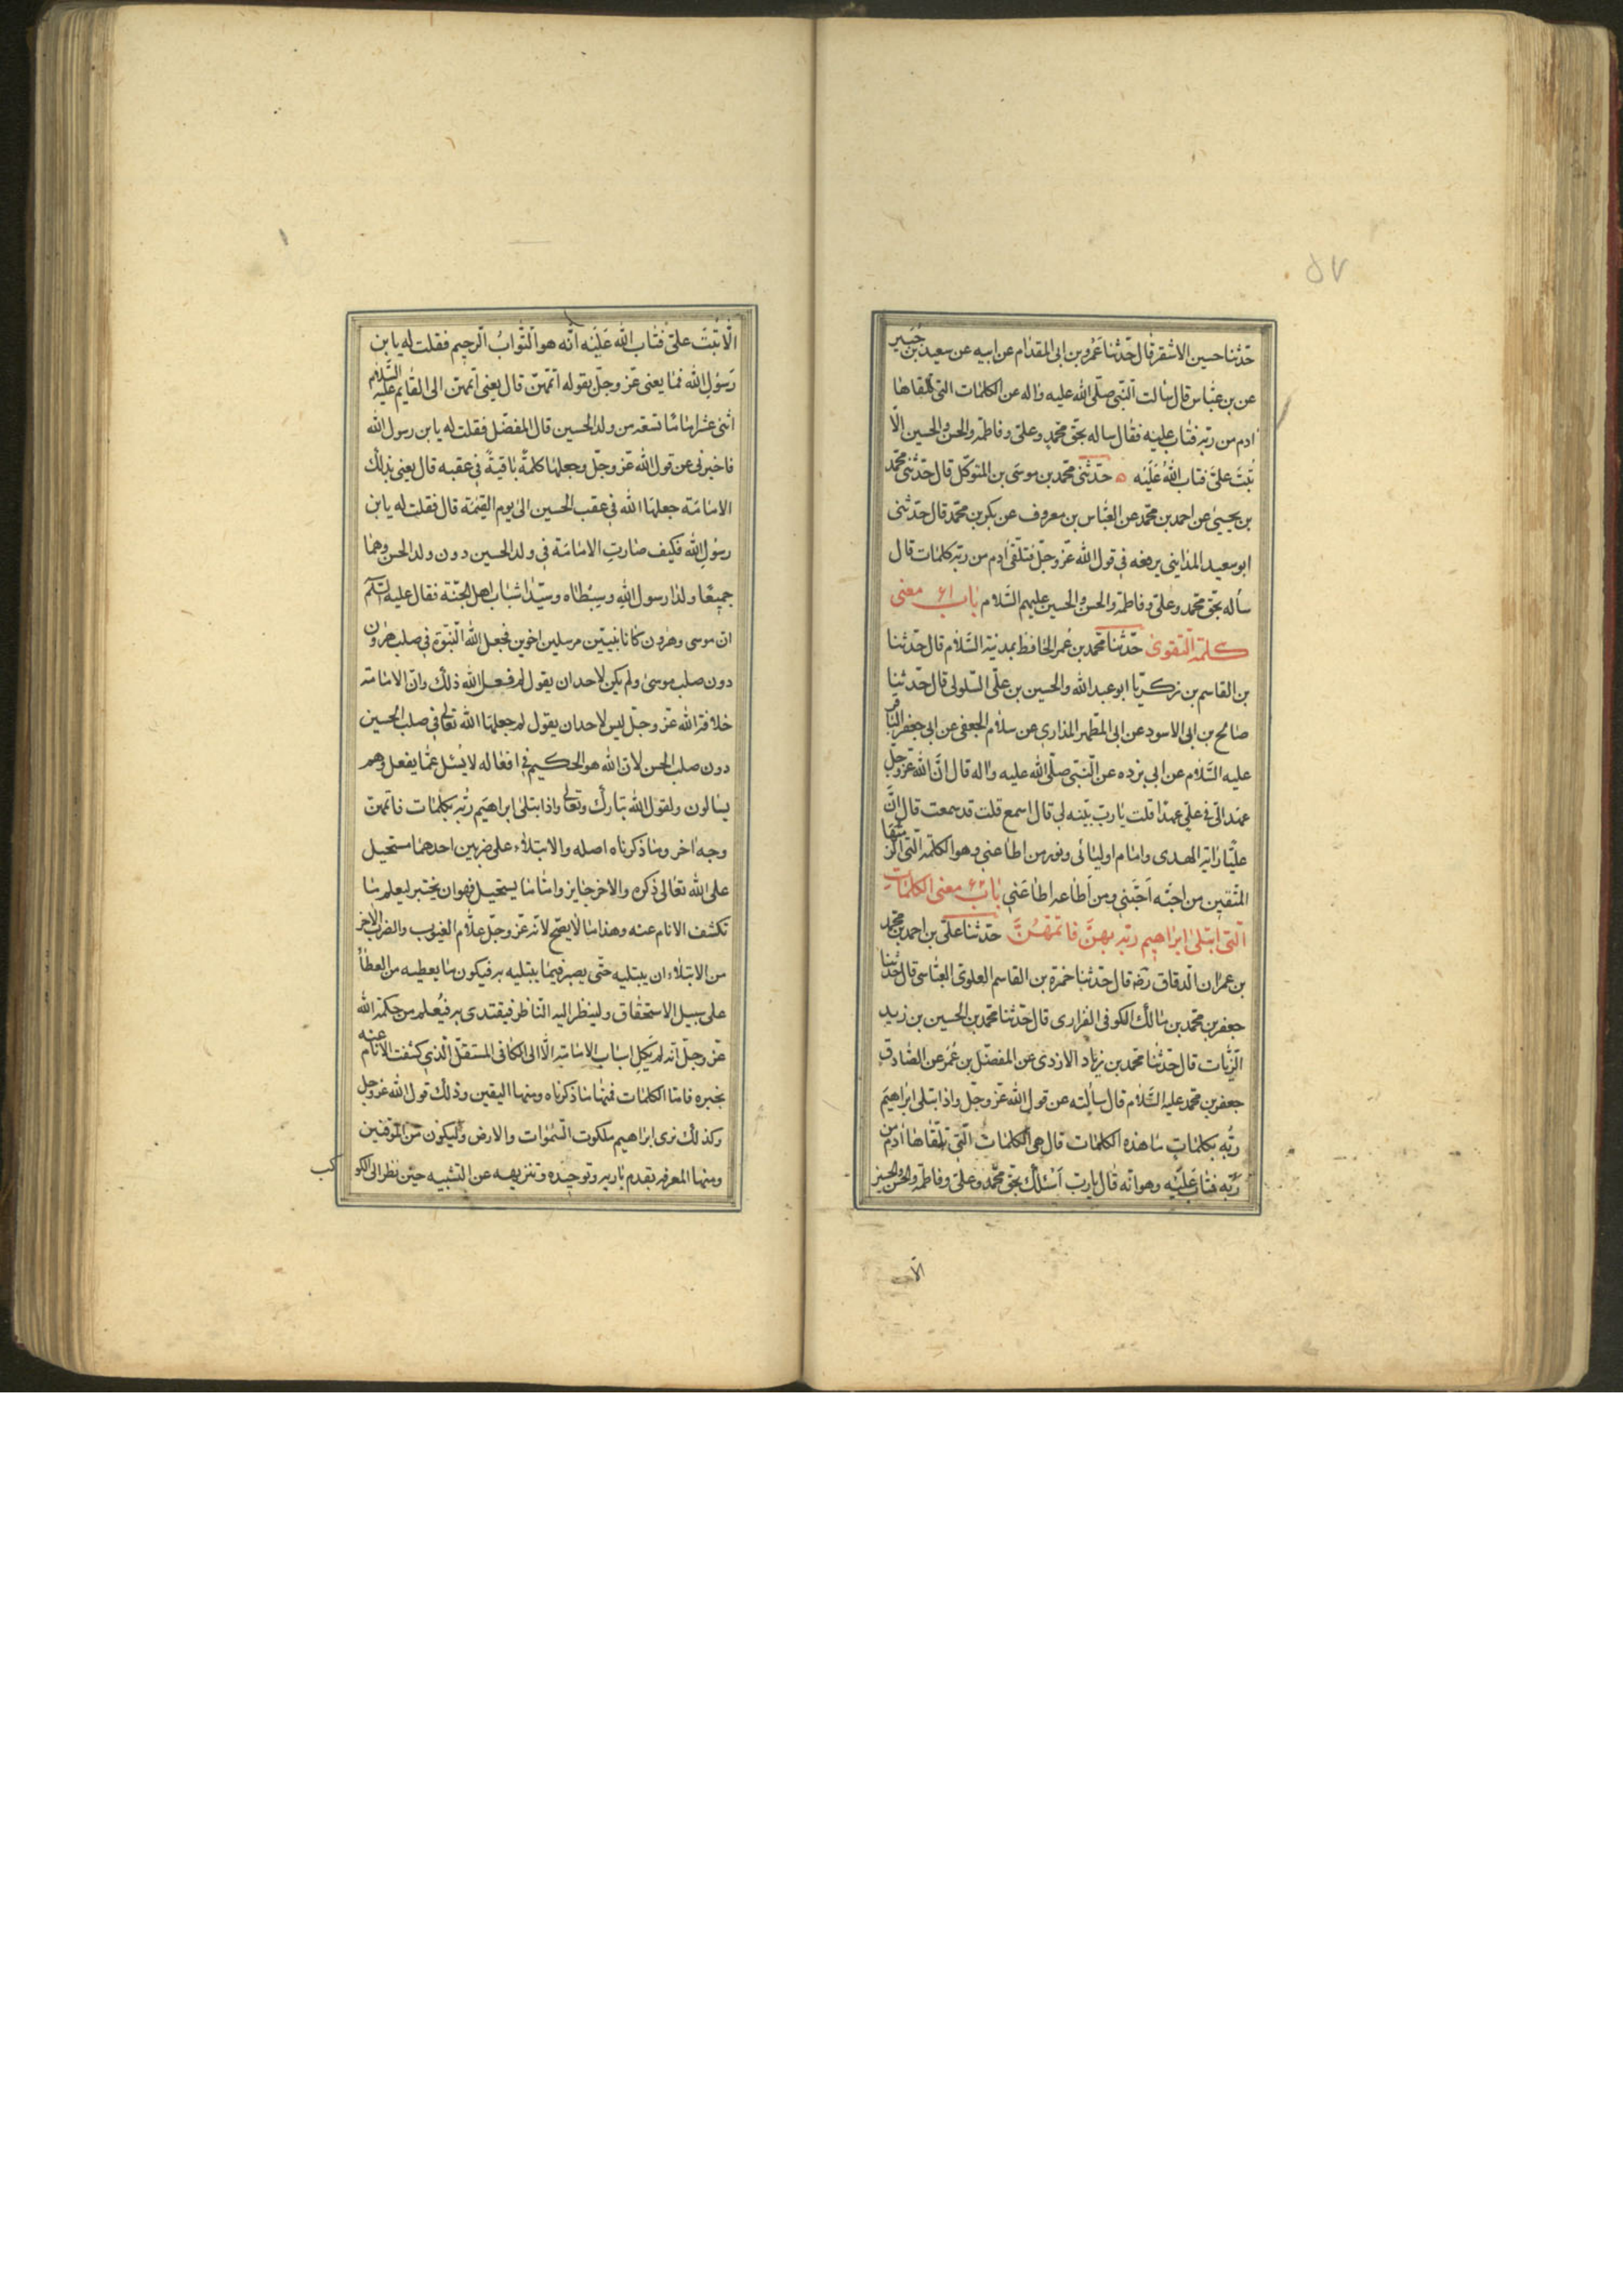 ٥٧
حدّثنا حسين الاشقر قال حدّثنا عَمْرو بن ابی المقدام عن ابيه عن سعيد بن جُبَير
عن بن عبّاس قال سالت النّبی صلّی الله عليه واله عن الكلمات التی تلقاها
ادم من ربّه فتاب عليه فقال ساله بحق محمّد وعلیّ وفاطمة والحسن والحسين الّا
تُبتَ علیّ فتاب اللهُ عَلَيْه ه حدّثنی محمّد بن موسَی بن المتوكّل قال حدّثنی محمّد
بن يحيیٰ عن احمد بن محمّد عن العبّاس بن معروف عن بكر بن محمّد قال حدّثنی
ابو سعيد المدايني يرفعه في قول الله عزّ وجلّ فتلقّی ادم من ربّه كلمات قال
سأله بحقّ محمّد وعلیّ وفاطمة والحسن والحسين عليهم السّلام باب ٦١ معنی
كلمة التّقویٰ حدّثنا محمّد بن عُمر الحافظ بمدينة السّلام قال حدّثنا
بن القاسم بن زكريّا ابو عبد الله والحسين بن علی السّلولی قال حدّثنا
صالح بن ابی الاسود عن ابی المطهر المذاری عن سلام الجعفی عن ابی جعفر الباقر
عليه السّلام عن ابي بزده عن النّبی صلّی الله عليه واله قال انّ الله عزّ وجلّ
عهد الیّ في علیّ عهدا قلت يا ربّ بيّنه لی قال اسمع قلت قد سمعت قال انّ
عليّا راية الهدی وامام اوليائی ونور من اطاعني وهو الكلمة الّتی الزمتها
المتّقين من احبّه اَحَبّني ومن اَطاعه اطاعَني بابُ ٦٢ معنی الكلماتِ
الّتی ابتلیٰ ابراهيم ربّه بهنَّ فاتمّهُنَّ حدّثنا علیّ بن احمد بن محمّد
بن عمران الدقاق رضه قال حدّثنا حمزة بن القاسم العلویّ العبّاسی قال حدّثنا
جعفر بن محمّد بن مالك الكوفی الفزاری قال حدّثنا محمّد بن الحُسين بن زيد
الزّيات قال حدّثنا محمّد بن زياد الازدی عن المفضّل بن عُمَر عن الصّادقِ
جعفر بن محمّد عليه السّلام قال سألته عن قول الله عزّ وجلّ واذ ابتلی ابراهيمَ
ربُّه بكلماتٍ ما هذه الكلمات قال هی الكلماتُ الّتی تلقّاها اٰدم من
رَبّه فتابَ عَلَيْه وهو انّه قال يا ربّ اَسْئَلُك بحقّ محمّد وعلیّ وفاطمة والحسن والحسين
الّا تبت
الّا تُبْتَ علیّ فَتابَ اللهُ عَلَيْه انّه هو التّوابُ الرّحيم فقلت له يا بن
رَسولِ الله فما يعنی عزّ وجلّ بقوله اتمّهنّ قال يعنی اتمّهنّ الی القايم عليه السّلام
اثنی عشر اماما تسعة من ولد الحسين قال المفضّل فقلت له يا بن رسول الله
فاخبرنی عن قول الله عزّ وجلّ وجعلها كلمةً باقيةً في عقبه قال يعنی بذلك
الامامَة جعلها الله فی عقب الحسين الی يوم القيٰمة قال فقلت له يا بن
رسُول الله فكيف صارتِ الامامَة في ولد الحسين دون ولد الحسن وهما
جميعًا ولدا رسول الله وسِبْطاه وسيّدا شباب اهل الجنّة فقال عليه السّلم
انّ موسی وهٰرون كانا نبيّين مرسلين اخوين فجعل الله النّبوّة في صلب هٰرون
دون صلب موسیٰ ولم يكن لاحد ان يقول لم فعل الله ذلك وانّ الامامة
خلافة الله عزّ وجلّ ليس لاحد ان يقول لم جعلها الله تعالی في صلب الحسين
دون صلب الحسن لانّ الله هو الحكيم في افعاله لا يُسْئل عمّا يفعل وهم
يسالون ولقول الله تبارك وتعالی واذ ابتلیٰ ابراهيم ربّه بكلمات فاتمّهنّ
وجه اخر وما ذكرناه اصله والابتلاء علی ضربين احدهما مستحيل
علی الله تعالی ذكره والاخر جايز وامّا ما يستحيل فهو ان يختبر ليعلم ما
تكشف الانام عنه وهذا ما لا يصحّ لانّه عزّ وجلّ علّام الغيوب والضرب الاخر
من الابتلاء ان يبتليه حتّی يصبر فيما يبتليه به فيكون ما يعطيه من العطاء
علی سبيل الاستحقاق ولينظر اليه النّاظر فيقتدی به فيُعلم من حكمة الله
عزّ وجلّ انّه لم يَكِل اسباب الامامة الّا الی الكافی المستقلّ الّذي كشفت الانام عنه
بخبره فامّا الكلمات فمنها ما ذكرناه ومنها اليقين وذلك قول الله عزّ وجل
وكذلك نری ابراهيم ملكوت السّمٰوات والارض وليكون من الموقنين
ومنها المعرفة بقدم باريه وتوحيده وتنزيهه عن التشبيه حين نظر الی الكو
كب